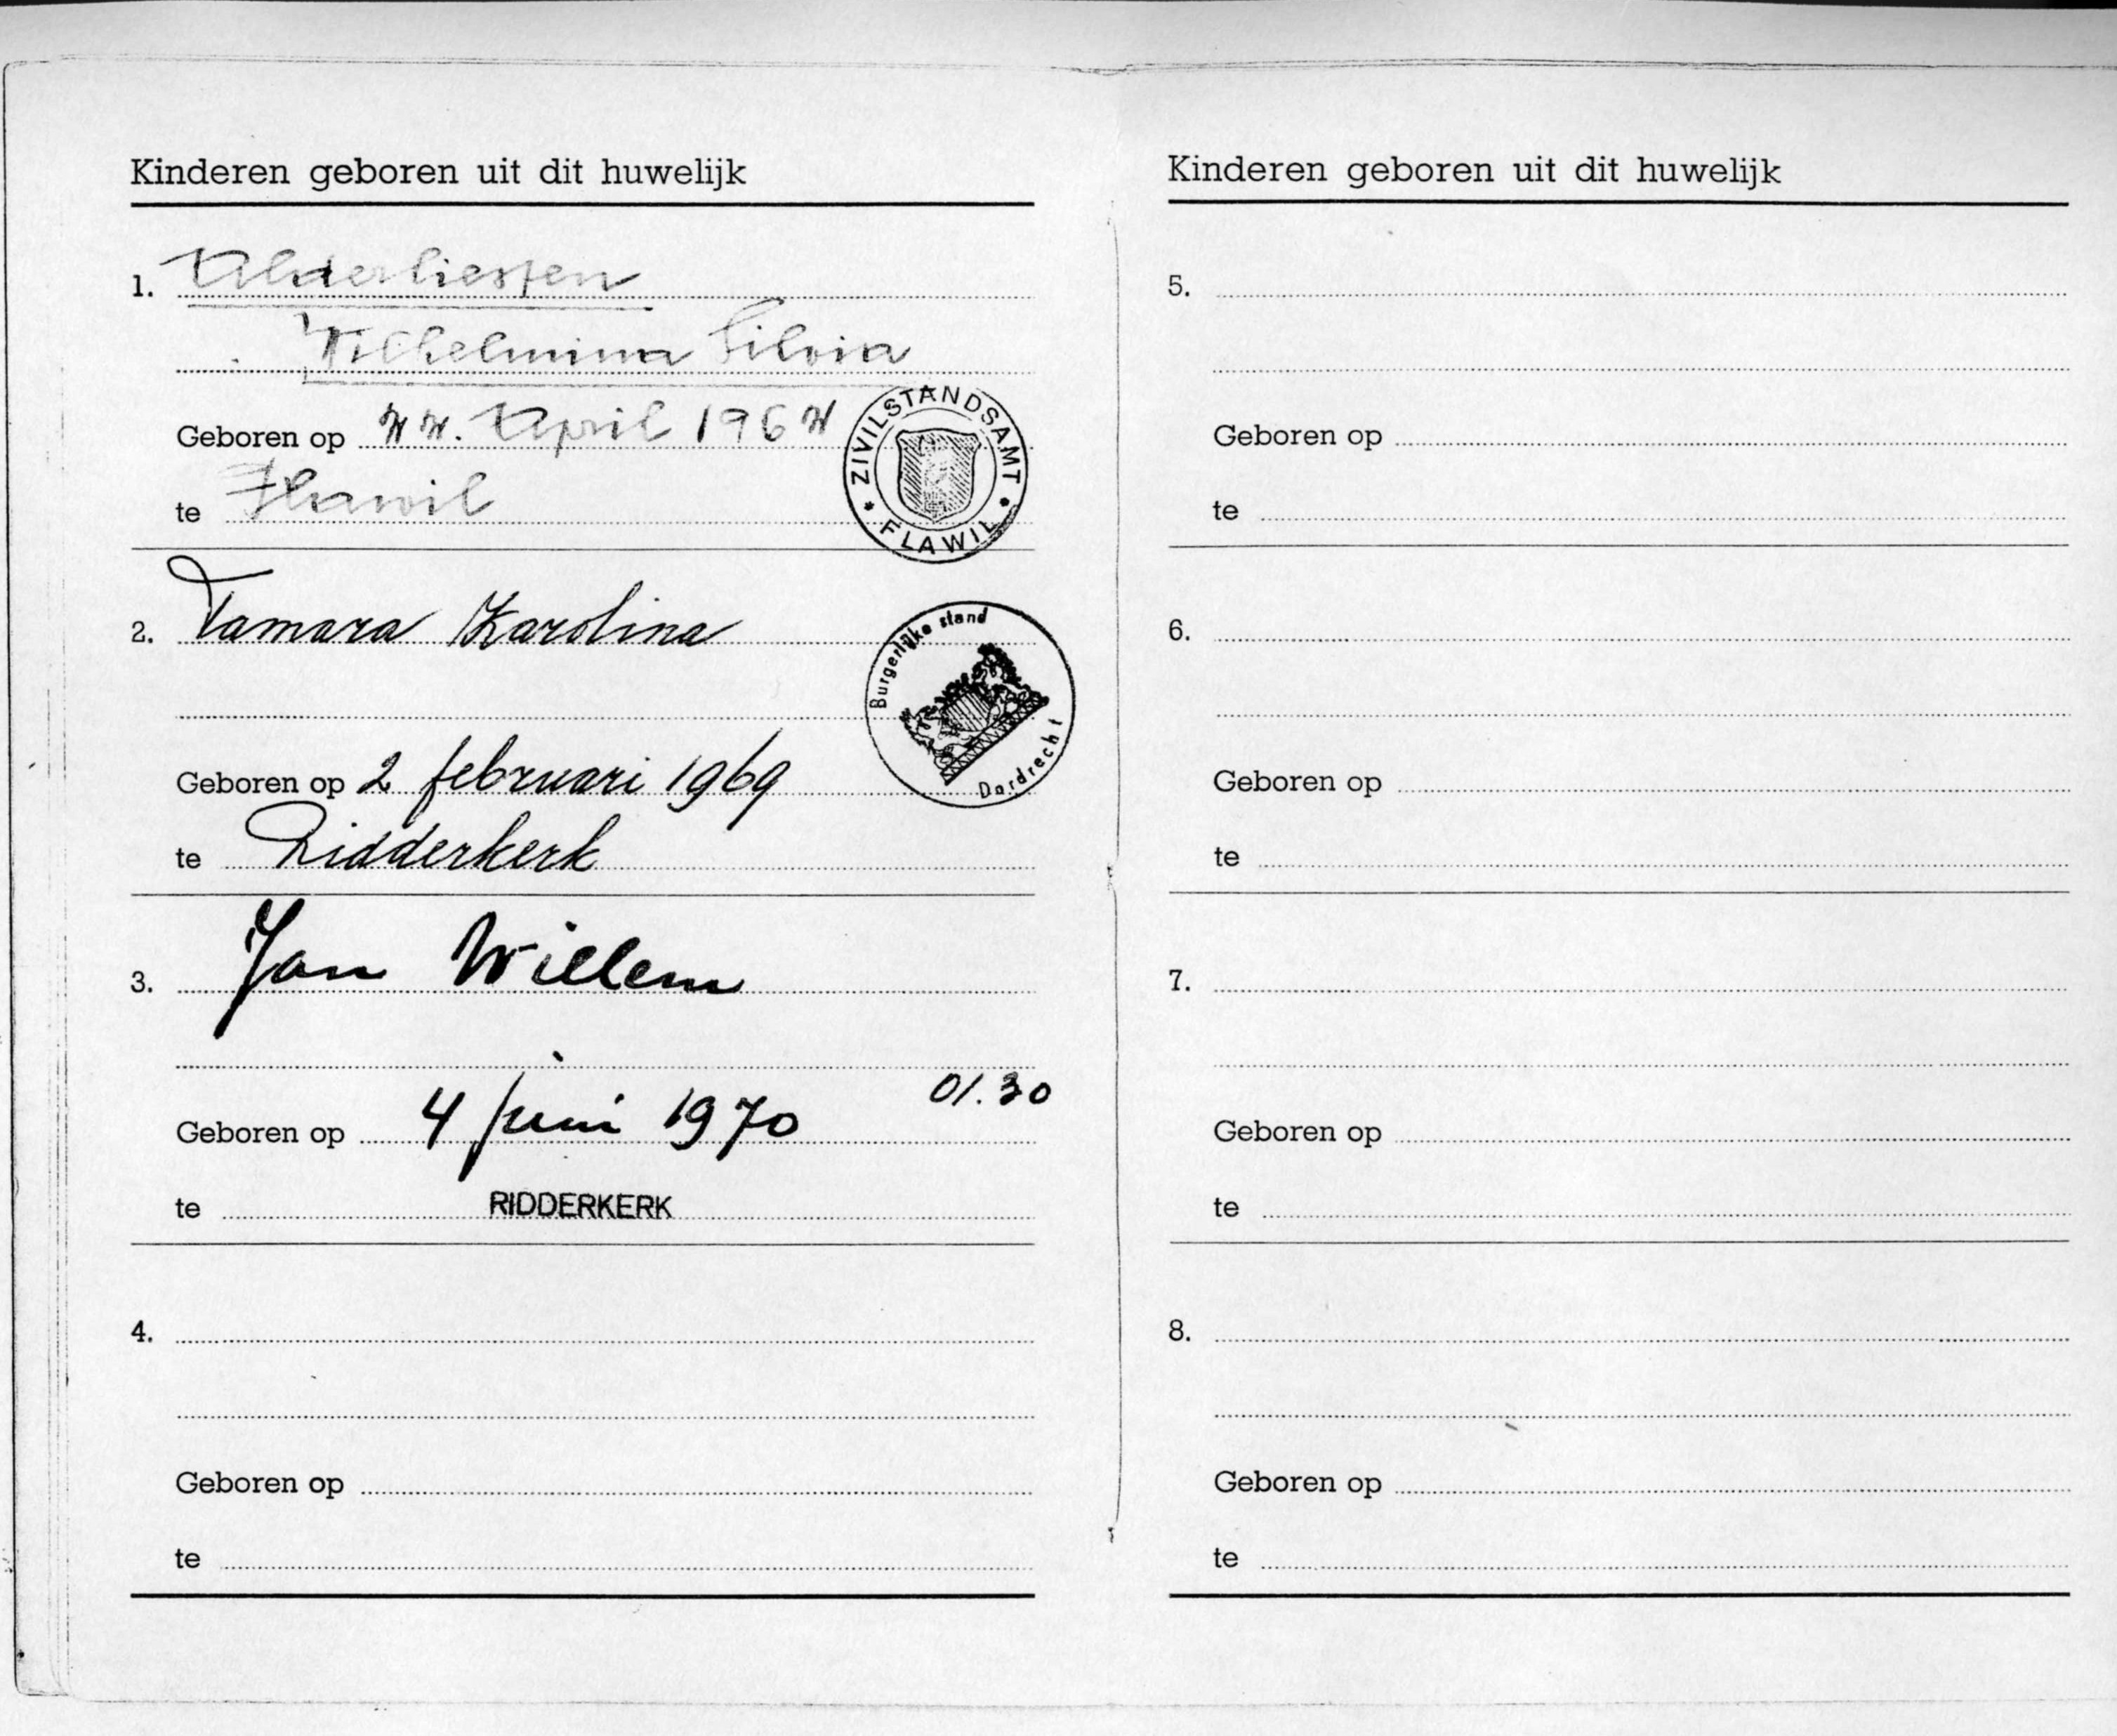 Kinderen geboren uit dit huwelijk
1. Alderliesten
Wilhelmina Silvia
Geboren op April 196
te Flawil
ZIVILSTANDSAMT
FLAWIL
2. Tamara Karolina
Geboren op 2 februari 1969
te Ridderkerk
Burgerlijke stand
Dordrecht
3. Jan Willem
01.30
Geboren op 4 juni 1970
te RIDDERKERK
4.
Geboren op
te
Kinderen geboren uit dit huwelijk
5.
Geboren op
te
6.
Geboren op
te
7.
Geboren op
te
8.
Geboren op
te